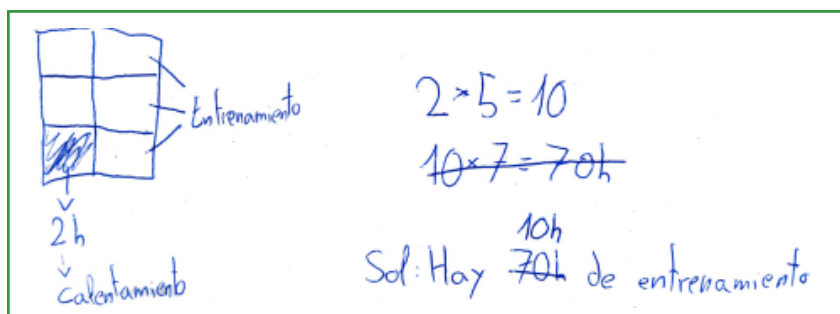 Entrenamiento
2h
Calentamiento
2×5=10
10×7=70h
10h
Sol: Hay 70h de entrenamiento